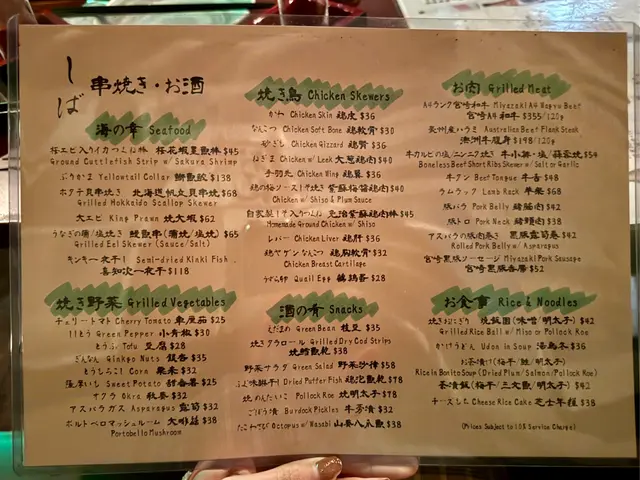 しば
串焼き・お酒
海の幸 Seafood
桜エビ入りイカつくね棒 桜花蝦墨魚棒 $45
Ground Cuttlefish Strip w/ Sakura Shrimp
ぶりかま Yellowtail Collar 鰤魚鮫 $138
ホタテ貝串焼き 北海道帆立貝串燒 $68
Grilled Hokkaido Scallop Skewer
大エビ King Prawn 燒大蝦 $62
うなぎの蒲/塩焼き 鰻魚串(蒲燒/塩燒) $65
Grilled Eel Skewer (Sauce/Salt)
キンキ一夜干し Semi-dried Kinki Fish
喜知次一夜干 $118
焼き野菜 Grilled Vegetables
チェリートマト Cherry Tomato 車厘茄 $25
ししとう Green Pepper 小青椒 $30
とうふ Tofu 豆腐 $28
ぎんなん Ginkgo Nuts 銀杏 $35
とうもろこし Corn 粟米 $32
薩摩いも Sweet Potato 甜蕃薯 $25
オクラ Okra 秋葵 $32
アスパラガス Asparagus 露筍 $32
ポルトベロマッシュルーム 大啡菇 $38
Portobello Mushroom
焼き鳥 Chicken Skewers
かわ Chicken Skin 鶏皮 $36
なんこつ Chicken Soft Bone 鶏軟骨 $30
砂ぎも Chicken Gizzard 鶏腎 $36
ねぎま Chicken w/ Leek 大葱鶏肉 $40
手羽先 Chicken Wing 鶏翼 $36
鶏の梅ソースしそ焼き 紫蘇梅醤鶏肉 $40
Chicken w/ Shiso & Plum Sauce
自家製しそ入りつくね 免治紫蘇鶏肉棒 $45
Homemade Ground Chicken w/ Shiso
レバー Chicken Liver 鶏肝 $36
鶏ヤゲンなんこつ 鶏胸軟骨 $32
Chicken Breast Cartilage
うずら卵 Quail Egg 鵪鶉蛋 $28
酒の肴 Snacks
えだまめ Green Bean 枝豆 $35
焼きタラロール Grilled Dry Cod Strips
燒鱈魚乾 $38
野菜サラダ Green Salad 野菜沙律 $58
ふぐ味醂干し Dried Puffer Fish 鶏泡魚乾 $78
焼めんたいこ Pollock Roe 燒明太子 $78
ごぼう漬 Burdock Pickles 牛蒡漬 $32
たこわさび Octopus w/ Wasabi 山葵八爪魚 $38
お肉 Grilled Meat
A4ランク宮崎和牛 Miyazaki A4 Wagyu Beef
宮崎A4和牛 $355/120g
豪州産ハラミ Australian Beef Flank Steak
澳洲牛腹骨 $198/120g
牛カルビの塩/ニンニク焼き 牛小排・塩/蒜蓉燒 $54
Boneless Beef Short Ribs Skewer w/ Salt or Garlic
牛タン Beef Tongue 牛舌 $48
ラムラック Lamb Rack 羊架 $68
豚バラ Pork Belly 豬腩肉 $42
豚トロ Pork Neck 豬頸肉 $38
アスパラの豚肉巻き 黒豚露筍卷 $42
Rolled Pork Belly w/ Asparagus
宮崎黒豚ソーセージ Miyazaki Pork Sausage
宮崎黒豚香腸 $52
お食事 Rice & Noodles
焼きおにぎり 燒飯團(味噌/明太子) $42
Grilled Rice Ball w/ Miso or Pollock Roe
かけうどん Udon in Soup 湯烏冬 $36
お茶漬け(梅干/鮭/明太子)
Rice in Bonito Soup (Dried Plum/Salmon/Pollock Roe)
茶漬飯(梅干/三文魚/明太子) $42
チーズもち Cheese Rice Cake 芝士年糕 $38
(Prices Subject to 10% Service Charge)